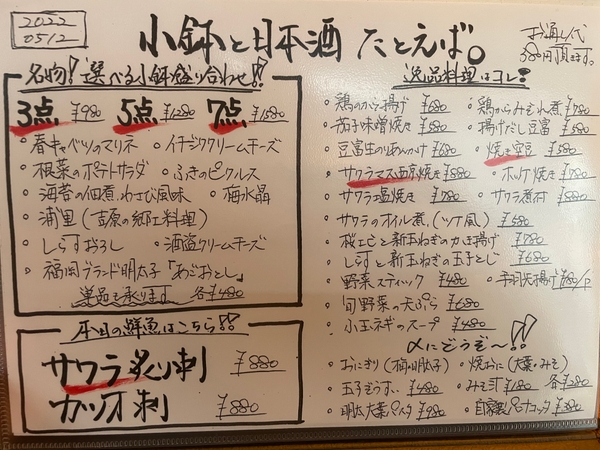 2022
0512
小鉢と日本酒 たとえば。
お通し代
380円頂きます。
名物!選べる小鉢盛り合わせ!!
3点 ¥980 5点 ¥1280 7点 ¥1580
・春キャベツのマリネ ・イチジククリームチーズ
・根菜のポテトサラダ ・ふきのピクルス
・海苔の佃煮わさび風味 ・梅水晶
・浦里(吉原の郷土料理)
・しらすおろし ・酒盗クリームチーズ
・福岡ブランド明太子「あごおとし」
単品も承ります 各¥480
本日の鮮魚はこちら!!
サワラ炙り刺 ¥880
カツオ刺 ¥880
逸品料理はコレ!
・鶏のから揚げ ¥680 ・鶏からみぞれ煮 ¥780
・茄子味噌焼き ¥580 ・揚げだし豆富 ¥580
・豆富生のりあんかけ ¥680 ・焼き空豆 ¥580
・サクラマス西京焼き ¥880 ・ホッケ焼き ¥780
・サワラ塩焼き ¥780 ・サワラ煮付 ¥880
・サワラのオイル煮(ツナ風) ¥580
・桜エビと新玉ねぎのかき揚げ ¥780
・しらすと新玉ねぎの玉子とじ ¥680
・野菜スティック ¥480 ・手羽先揚げ ¥180/P
・旬野菜の天ぷら ¥680
・小玉ネギのスープ ¥480
〆にどうぞ〜!!
・おにぎり(梅・明太子) ・焼おに(大葉・みそ)
・玉子ぞうすい ¥480 ・みそ汁 ¥180 各¥280
・明太大葉パスタ ¥980 ・自家製パンナコッタ ¥380